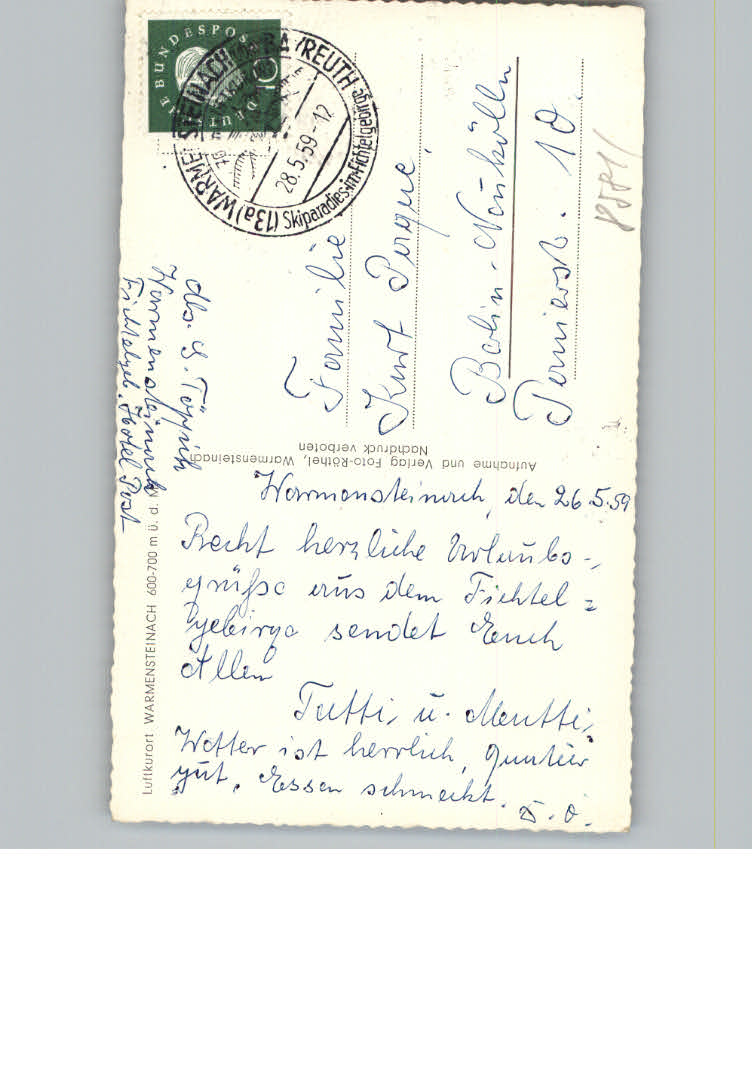 Warmensteinach, den 26.5.59
Recht herzliche Urlaubs-
grüße aus dem Fichtel=
gebirge sendet Euch
Allen
u. Mutti.
Wetter ist herrlich, Quartier
gut, Essen schmeckt.
Familie
Kurt
Berlin-Neukölln
10.
Abs. G.
Warmensteinach
Fichtelgeb. Hotel Post
Luftkurort WARMENSTEINACH 600-700 m ü. d. M.
Aufnahme und Verlag Foto-Röthel, Warmensteinach
Nachdruck verboten
DEUTSCHE BUNDESPOST
10
(13a) WARMENSTEINACH ü. BAYREUTH
28.5.59-12
Skiparadies-im-Fichtelgebirge